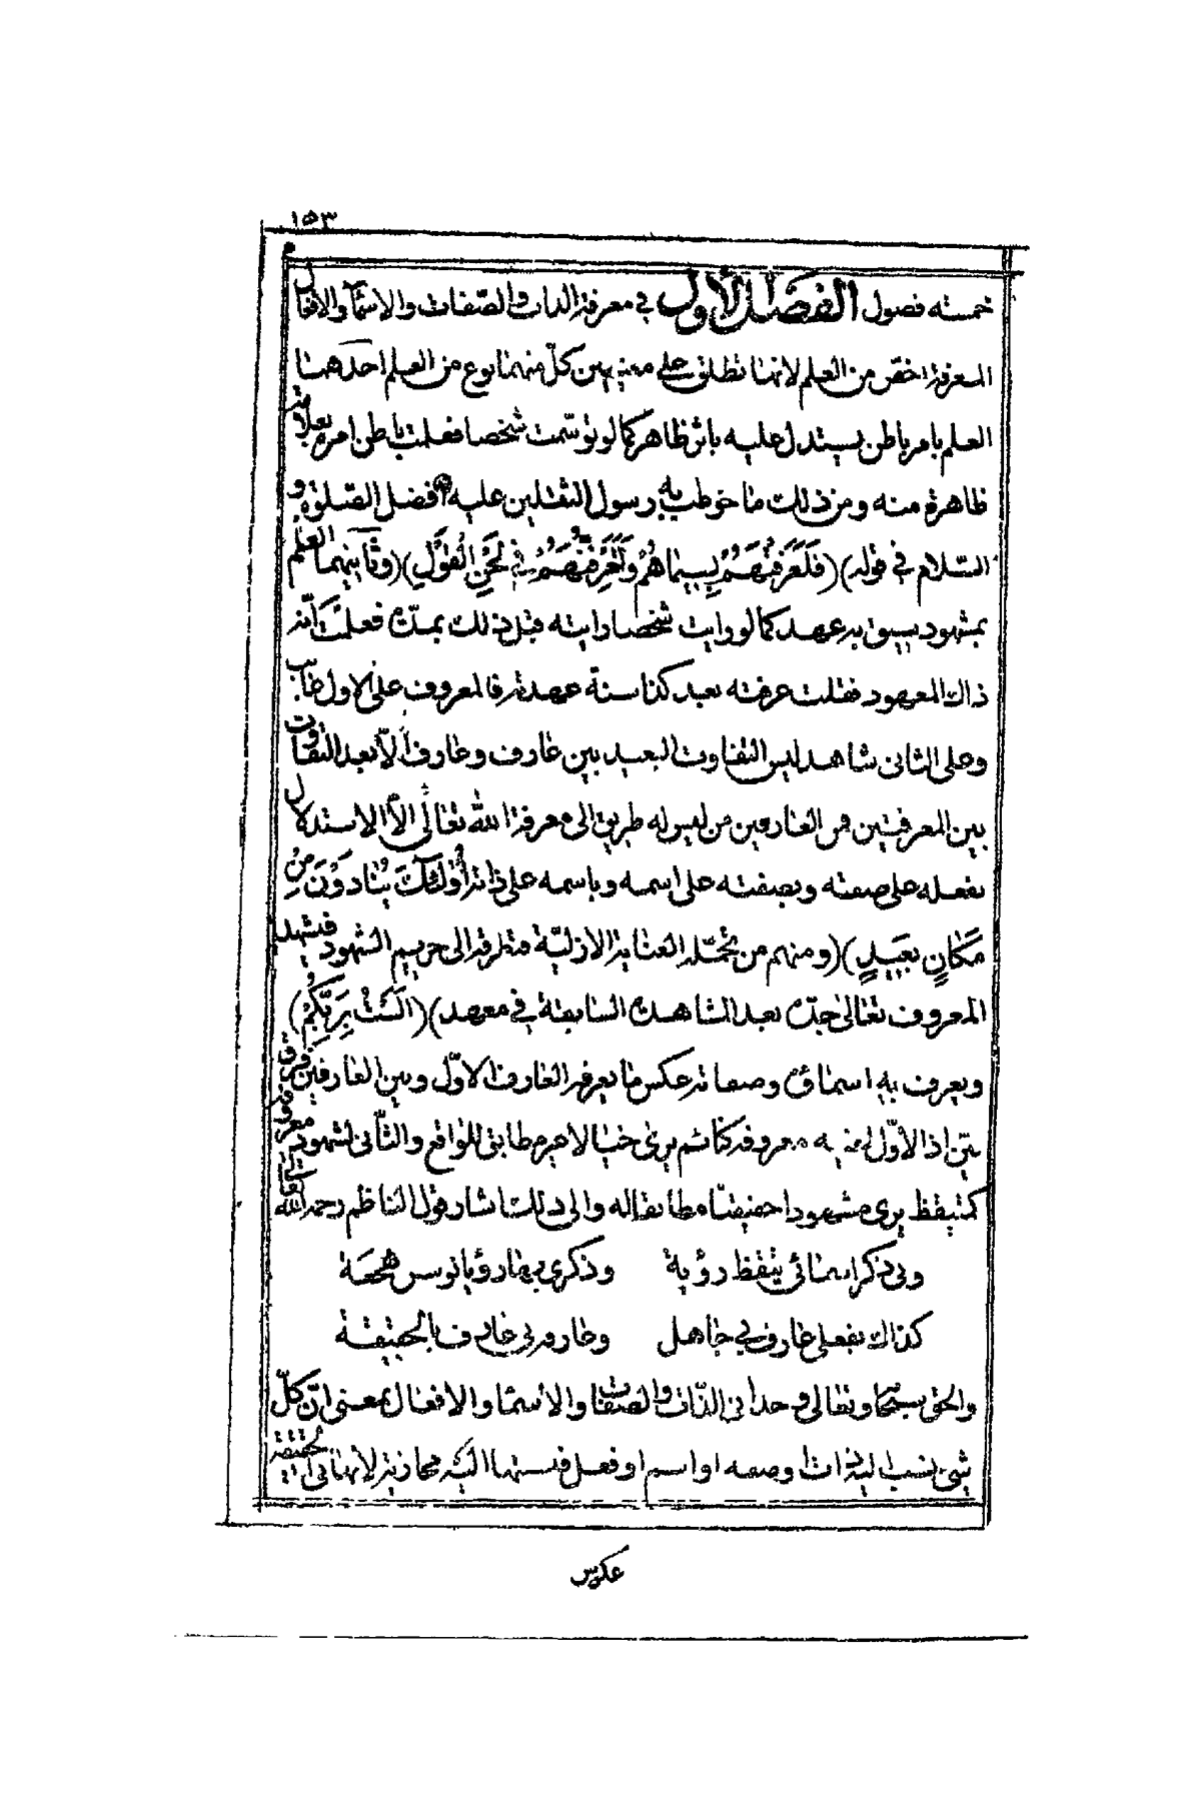 ١٥٣
خمسته فصول الفصل الأول في معرفة الذات والصّفات والاسمآ والافعال
المعرفة اخصّ من العلم لانها تطلق على معنيين كلّ منهما نوع من العلم احدهما
العلم بامر باطن يستدل عليه باثر ظاهر كما لو توسّمت شخصا فعلمت باطن امره بعلامة
ظاهرة منه ومن ذلك ما خوطب به رسول الثقلين عليه افضل الصّلوة و
السّلام في قوله ) (فَلَعَرَفْتَهُمْ بِسِيمَاهُمْ وَلَتَعْرِفَنَّهُمْ فِي لَحْنِ الْقَوْلِ) (وثانيهما العلم
بمشهود سبق به عهد كما لو رايت شخصا رايته قبل ذلك بمدّة فعلمت انّه
ذاك المعهود فقلت عرفته بعد كذا سنة عهدته فالمعروف على الاول غايب
وعلى الثانى شاهد ليس التفاوت البعيد بين عارف وعارف الّا بعد التفاوت
بين المعرفتين فمن العارفين من ليس له طريق الى معرفة الله تعالى الّا الاستدلال
بفعله على صفته وبصفته على اسمه وباسمه على ذاته أُولَٰئِكَ يُنَادَوْنَ مِنْ
مَكَانٍ بَعِيدٍ) (ومنهم من تحمّله العناية الازليّة فتطرقه الى حريم الشهود فيشهد
المعروف تعالى جدّه بعد المشاهدة السابقة في معهد) (أَلَسْتُ بِرَبِّكُمْ)
ويعرف به اسماؤه وصفاته عكس ما يعرفه العارف الاوّل وبين العارفين فرق
بيّن اذ الاوّل لغيبه معروفه كنائم يرى خيالا غير مطابق للواقع والثّانى لشهود معروفه
كمتيقظ يرى مشهودا حقيقيّا مطابقا له والى ذلك اشار قول الناظم رحمه الله تعالى
وفى ذكر اسمائى تيقظ رؤية وذكرى بها رؤيا توسن هجعة
كذاك بفعلى عارفي بى جاهل وعارفه بى عارف بالحقيقة
والحق سبحانه وتعالى وحدانى الذّات والصفات والأسما والافعال بمعنى انّ كلّ
شئ ينسب اليه ذات او صفه او اسم او فعل فنسبتها اليه مجازية لانها فى الحقيقة
عكوس